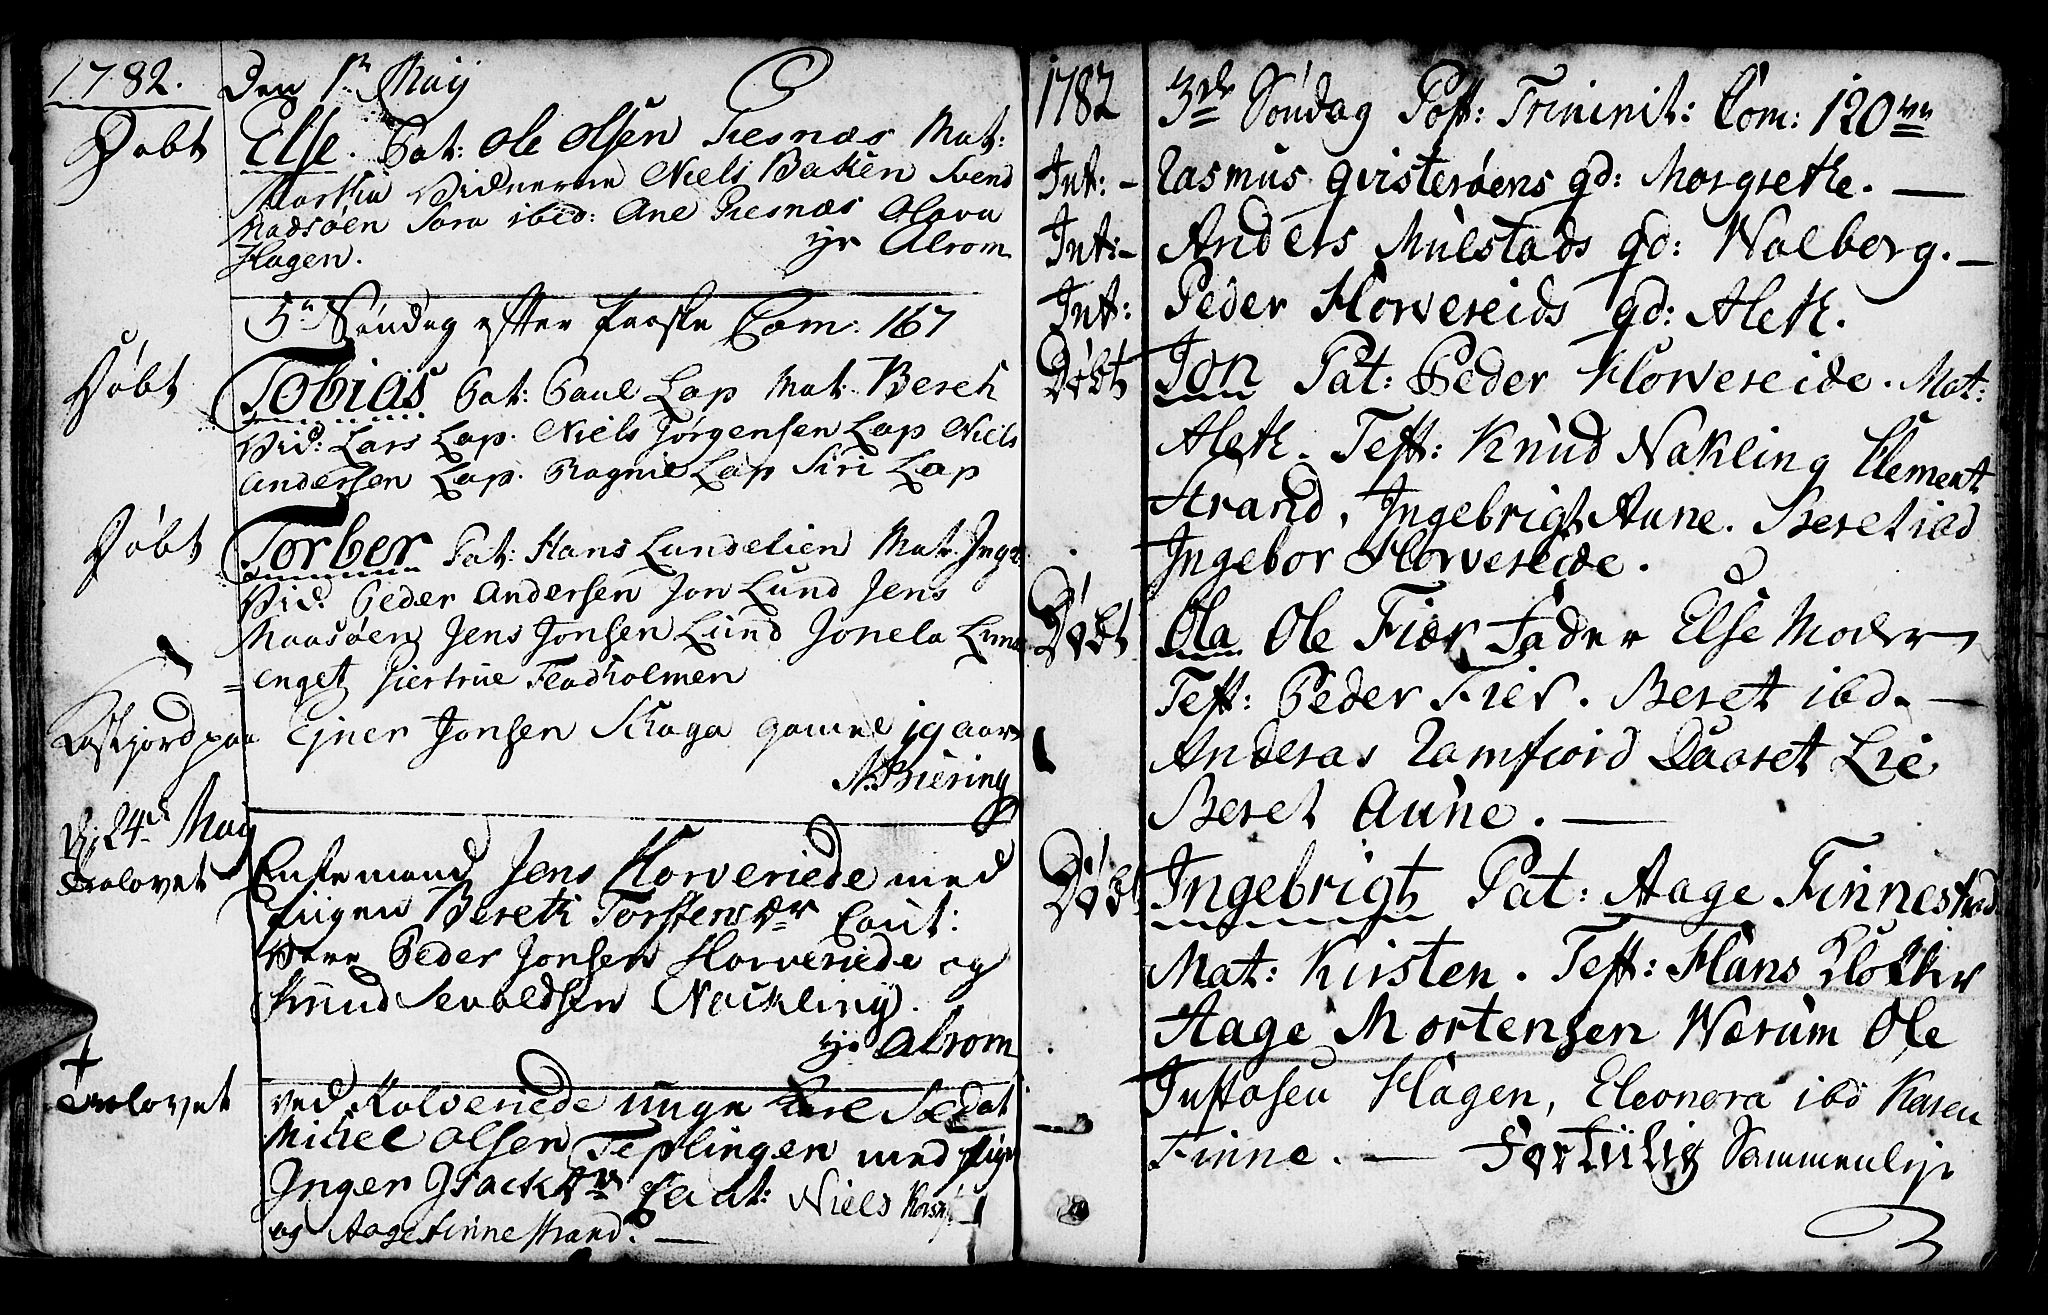 1782. Den 1te Maÿ
Døbt Else. Pat: Ole Olsen Presnæs Mat:
Martha Vidnerne Niels Baken Svend
Madsøen Sara ibid: Ane Presnæs Olava
Hagen. Alrom
5te Søndag efter Paaske Com: 167
Døbt Tobias Pat: Paul Lap Mat: Bereth
Vid: Lars Lap. Niels Jørgensen Lap Niels
Andersen Lap. Ragnil Lap Siri Lap
Døbt Torber Pat: Hans Lundelien Mat:
Vid: Peder Andersen Jon Lund Jens
Maasøen Jens Jonsen Lund Jonela Lund
=enget Fladholmen
Ejner Jonsen Skaga gamel 19 aar
24de Maÿ
Trolovet Enkemand Jens Horveriede med
Pigen Bereth Torstensdr Caut:
Vare Peder Jonsen Horveriede og
Knud Sevaldsen Nackling.
Alrom
Trolovet ved Kolveriede unge
Mickel Olsen Teplingen med Pige
Inger Isacksdr Caut: Niels
og Aage Finnestrand.
1782 3die Søndag Post: Trininit: Com: 120
Int: - Rasmus Qvisterøens qd: Morgrethe. —
Int: - Anders Mulstads qd: Walberg. —
Int: Peder Horvereids qd: Aleth.
Døbt Jon Pat: Peder Horvereide. Mat:
Aleth. Test: Knud Nakling Clement
Strand, Ingebrigt Aune. Beret ibd
Ingebor Horvereide.
Døbt Ola Ole Fier Fader Else Moder
Test: Peder Fier. Beret ibd. —
Anderas Ramfiord Daaret Lie
Beret Aune. —
Døbt Ingebrigt Pat: Aage Finnestrand
Mat: Kirsten. Test: Hans Klokker
Aage Mortensen Wærum Ole
Justasen Hagen, Eleonora ibd Karen
Finne. —